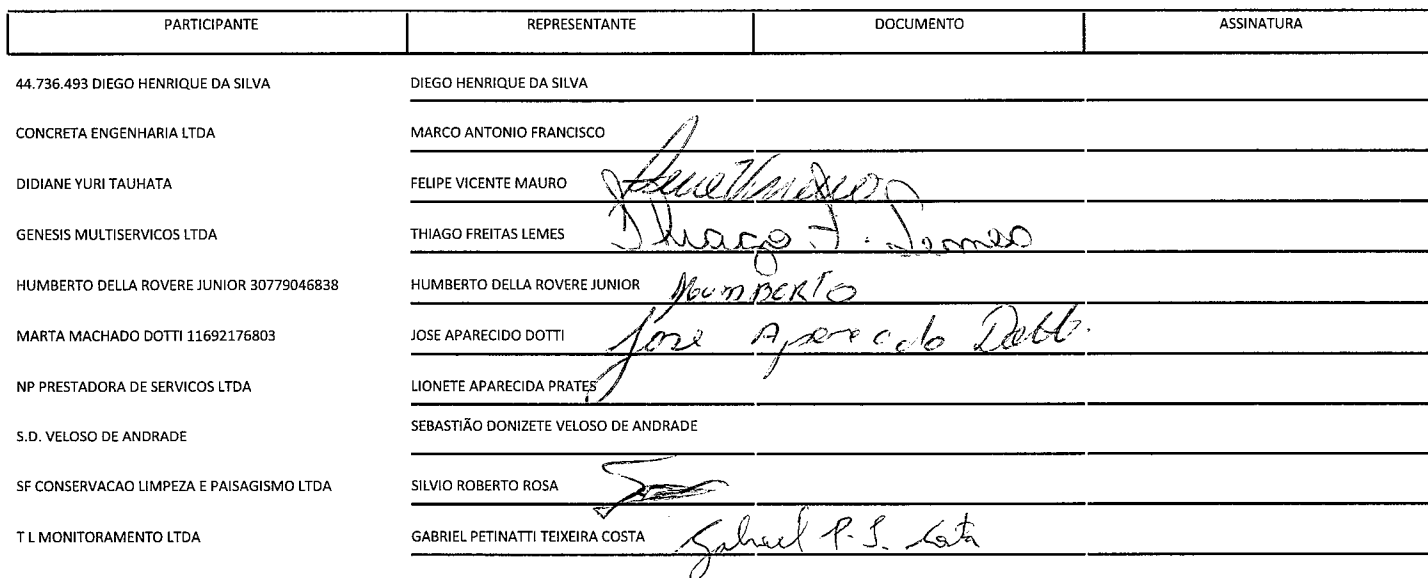 PARTICIPANTE REPRESENTANTE DOCUMENTO ASSINATURA
44.736.493 DIEGO HENRIQUE DA SILVA DIEGO HENRIQUE DA SILVA
CONCRETA ENGENHARIA LTDA MARCO ANTONIO FRANCISCO
DIDIANE YURI TAUHATA FELIPE VICENTE MAURO
GENESIS MULTISERVICOS LTDA THIAGO FREITAS LEMES Thiago F. Lemes
HUMBERTO DELLA ROVERE JUNIOR 30779046838 HUMBERTO DELLA ROVERE JUNIOR HumBERTO
MARTA MACHADO DOTTI 11692176803 JOSE APARECIDO DOTTI Jose Aparecido Dotti
NP PRESTADORA DE SERVICOS LTDA LIONETE APARECIDA PRATES
S.D. VELOSO DE ANDRADE SEBASTIÃO DONIZETE VELOSO DE ANDRADE
SF CONSERVACAO LIMPEZA E PAISAGISMO LTDA SILVIO ROBERTO ROSA
T L MONITORAMENTO LTDA GABRIEL PETINATTI TEIXEIRA COSTA Gabriel P. T. Costa